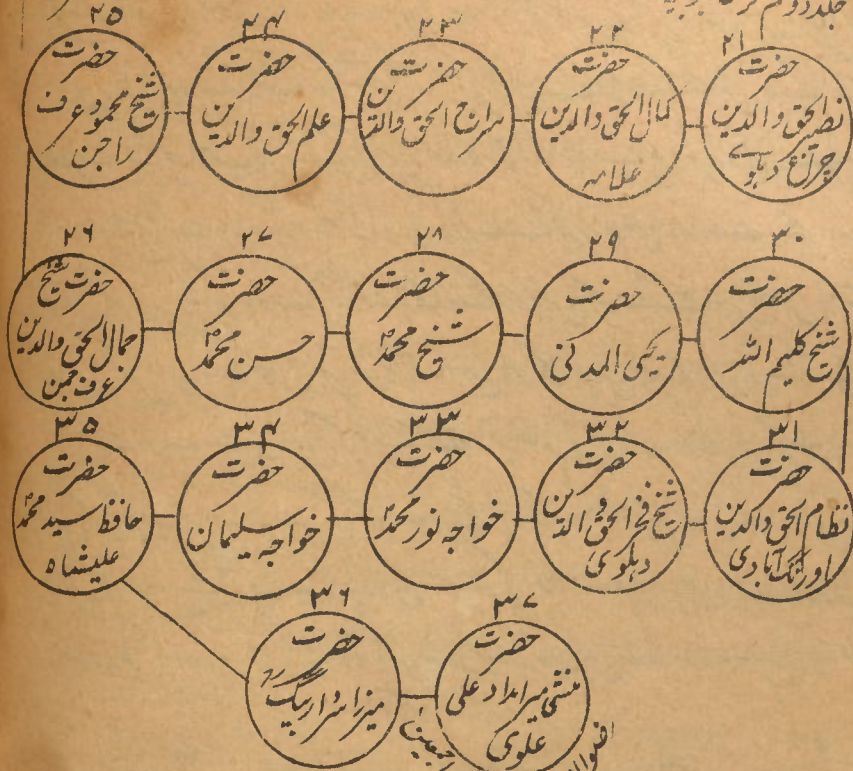 جلد دوم
۲۱
حضرت
نصیر الحق والدین
چراغ دہلوے
۲۲
حضرت
کمال الحق والدین
علامہ
۲۳
حضرت
سراج الحق والدین
۲۴
حضرت
علم الحق والدین
۲۵
حضرت
شیخ محمود عرف
راجن
۲۶
حضرت شیخ
جمال الحق والدین
عرف جمن
۲۷
حضرت
حسن محمدؐ
۲۸
حضرت
شیخ محمدؐ
۲۹
حضرت
یحیی المدنی
۳۰
حضرت
شیخ کلیم اللہ
۳۱
حضرت
نظام الحق والدین
اورنگ آبادی
۳۲
حضرت
شیخ فخر الحق والدین
دہلوی
۳۳
حضرت
خواجہ نور محمدؐ
۳۴
حضرت
خواجہ سلیمان
۳۵
حضرت
حافظ سید محمدؐ
علیشاہ
۳۶
حضرت
میرزا سردار بیگ
۳۷
حضرت
منشی میر امداد علی
علوی
اجمعین